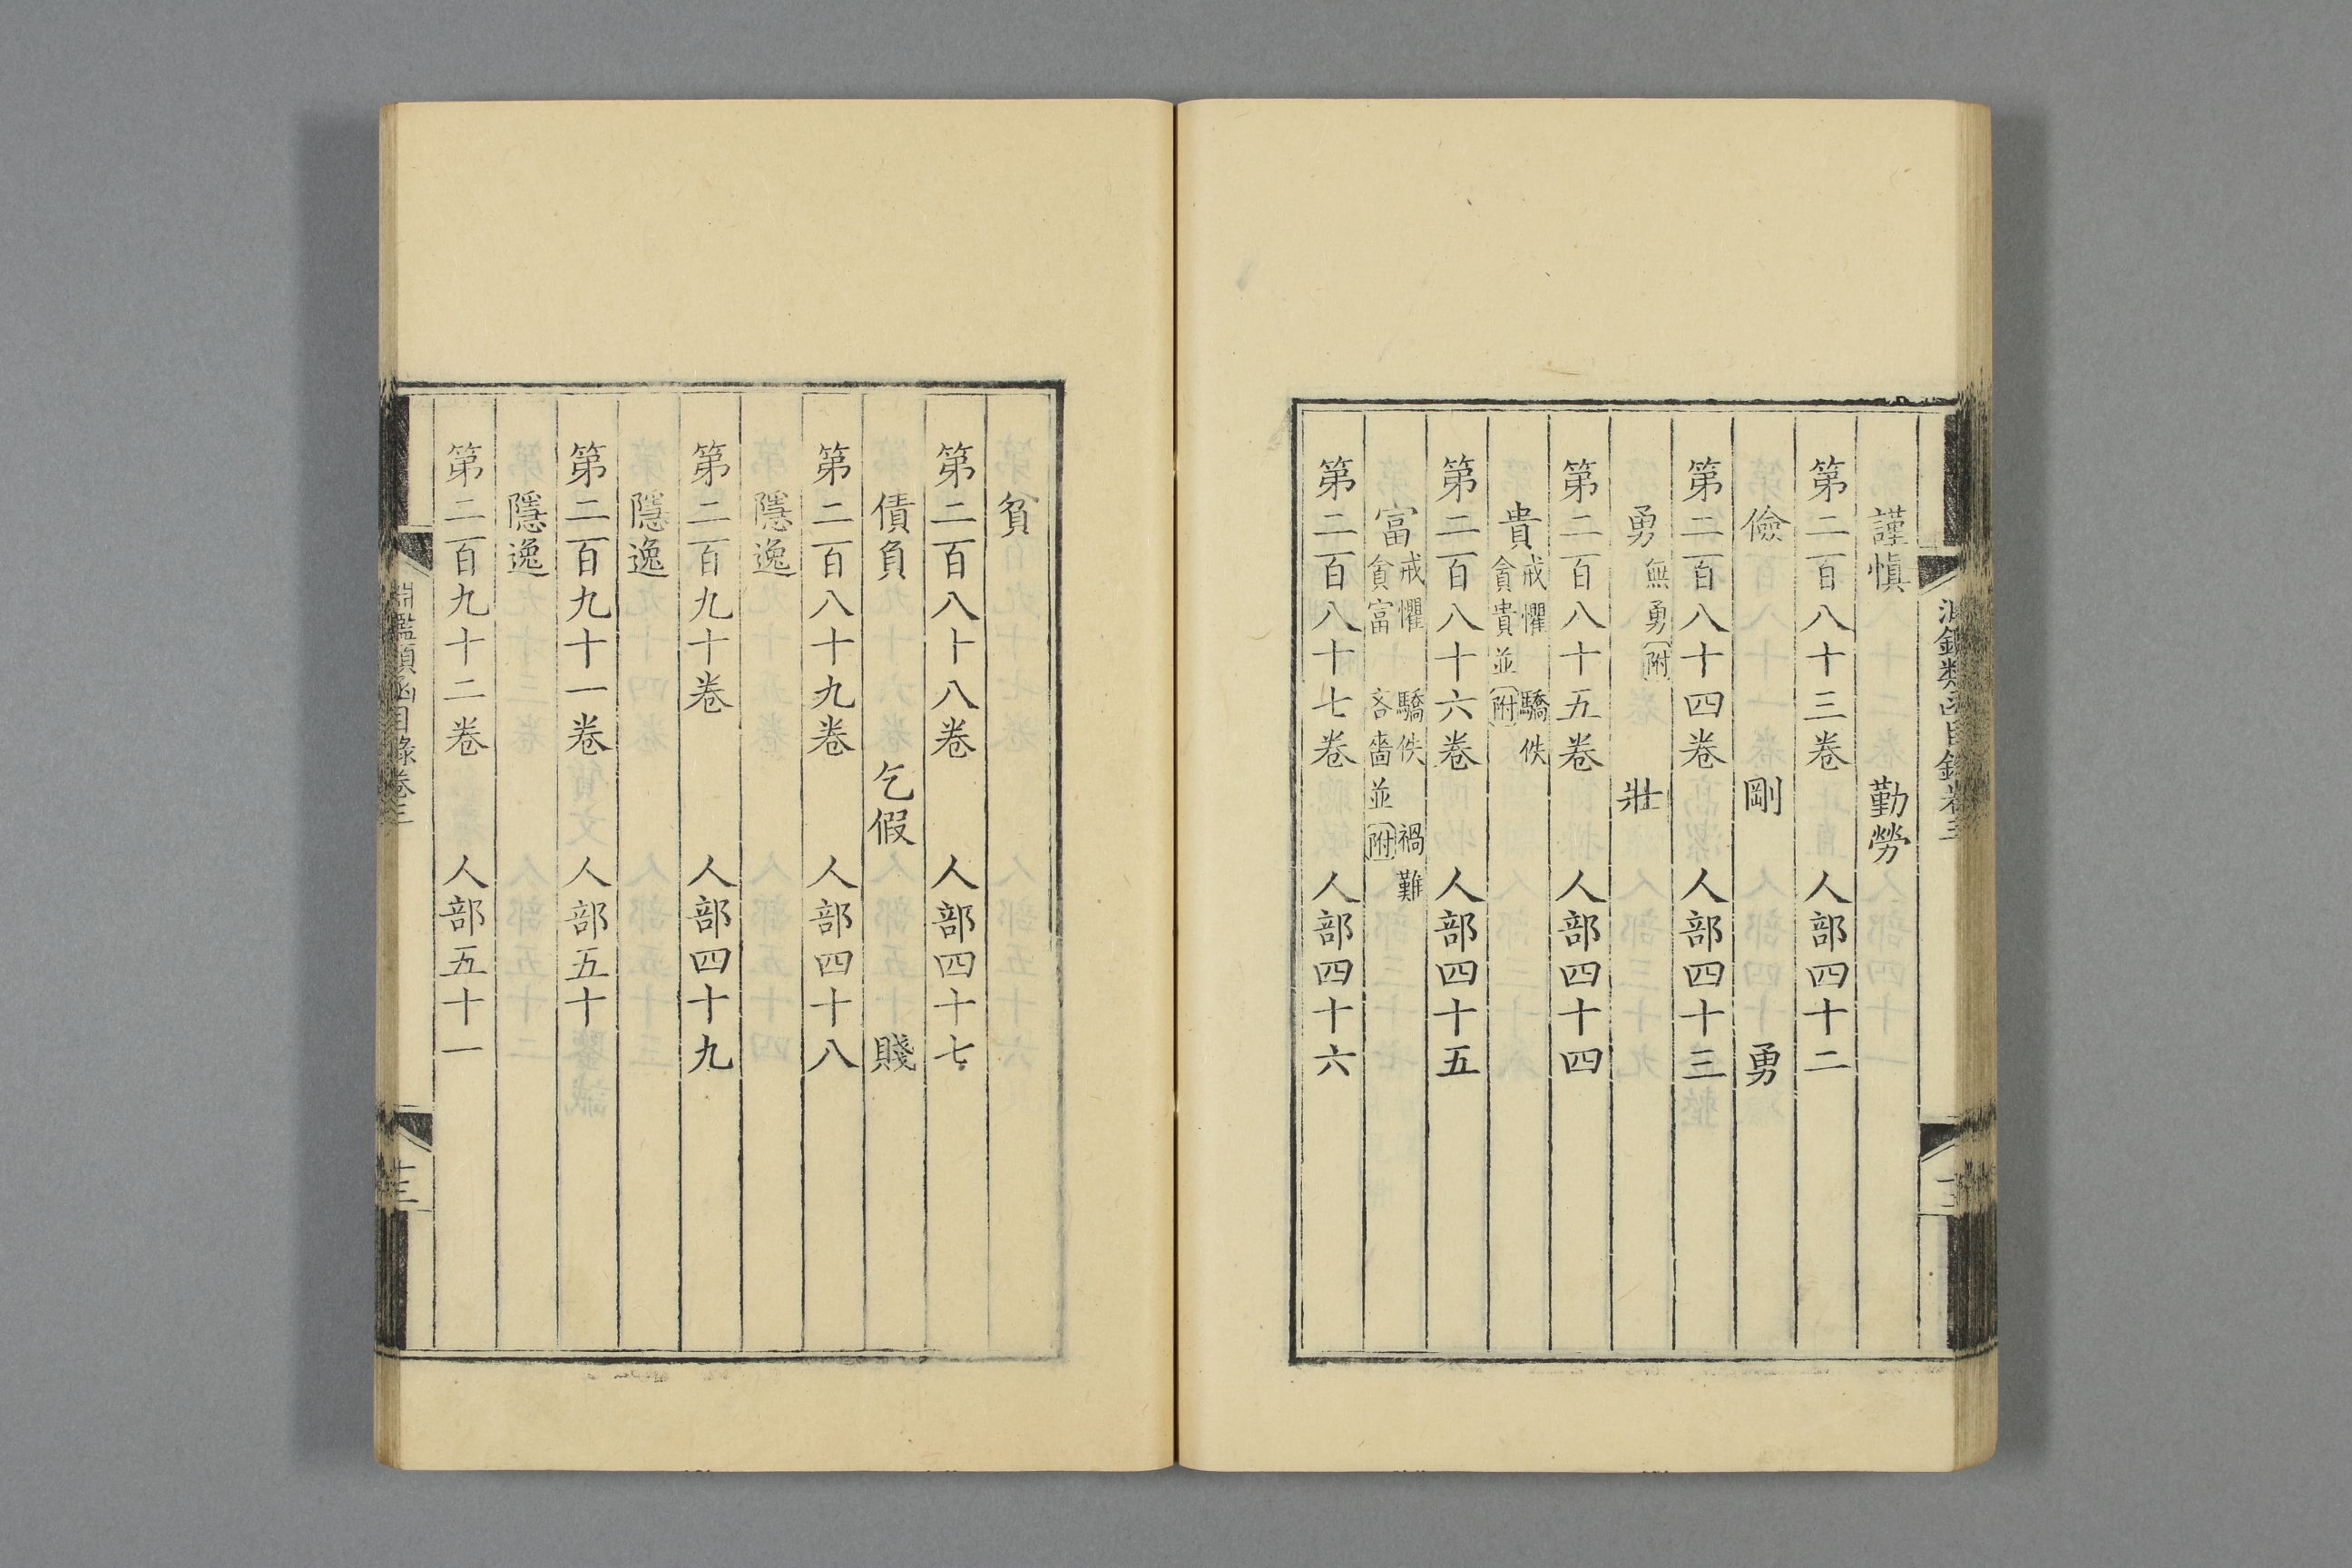 謹愼 勤勞
第二百八十三卷 人部四十二
儉 剛 勇
第二百八十四卷 人部四十三
勇 無勇附 壯
第二百八十五卷 人部四十四
貴 戒懼 驕佚 貪貴並附
第二百八十六卷 人部四十五
富 戒懼 驕佚 禍難 貪富 吝嗇並附
第二百八十七卷 人部四十六
貧
第二百八十八卷 人部四十七
債負 乞假 賤
第二百八十九卷 人部四十八
隱逸
第二百九十卷 人部四十九
隱逸
第二百九十一卷 人部五十
隱逸
第二百九十二卷 人部五十一
淵鑑類函目錄卷三
十三